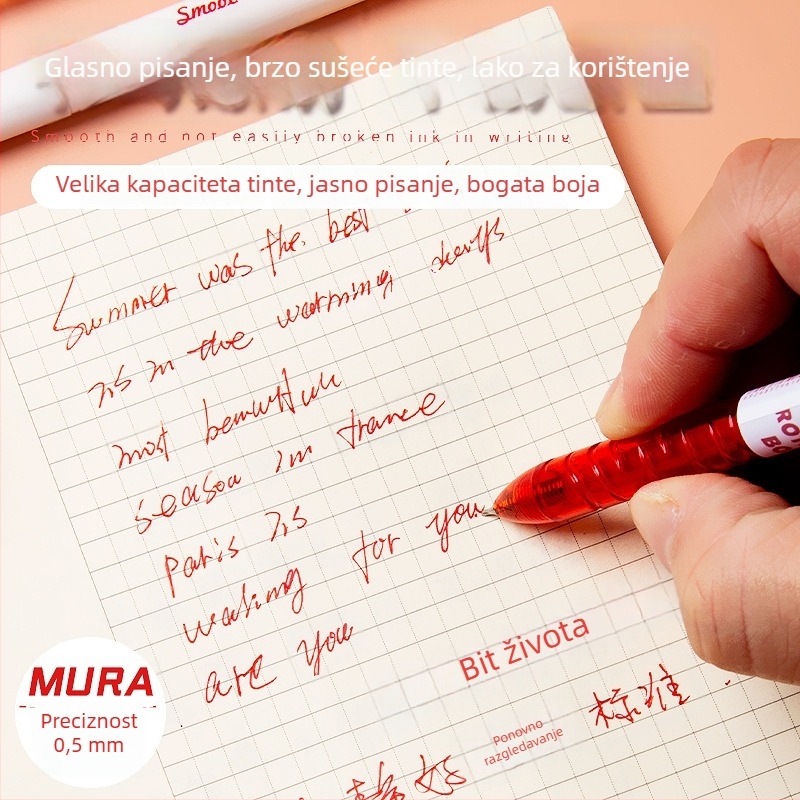 Smoot
Glasno pisanje, brzo sušeće tinte, lako za korištenje
Smooth and not easily broken ink in writing
Velika kapaciteta tinte, jasno pisanje, bogata boja
Summer was the best
is in the warming
most beautiful
season in france
Paris is
waiting for you
are you
ROT
BO
Bit života
MURA
Preciznost
0,5 mm
Ponovno
razgledavanje
标准
好